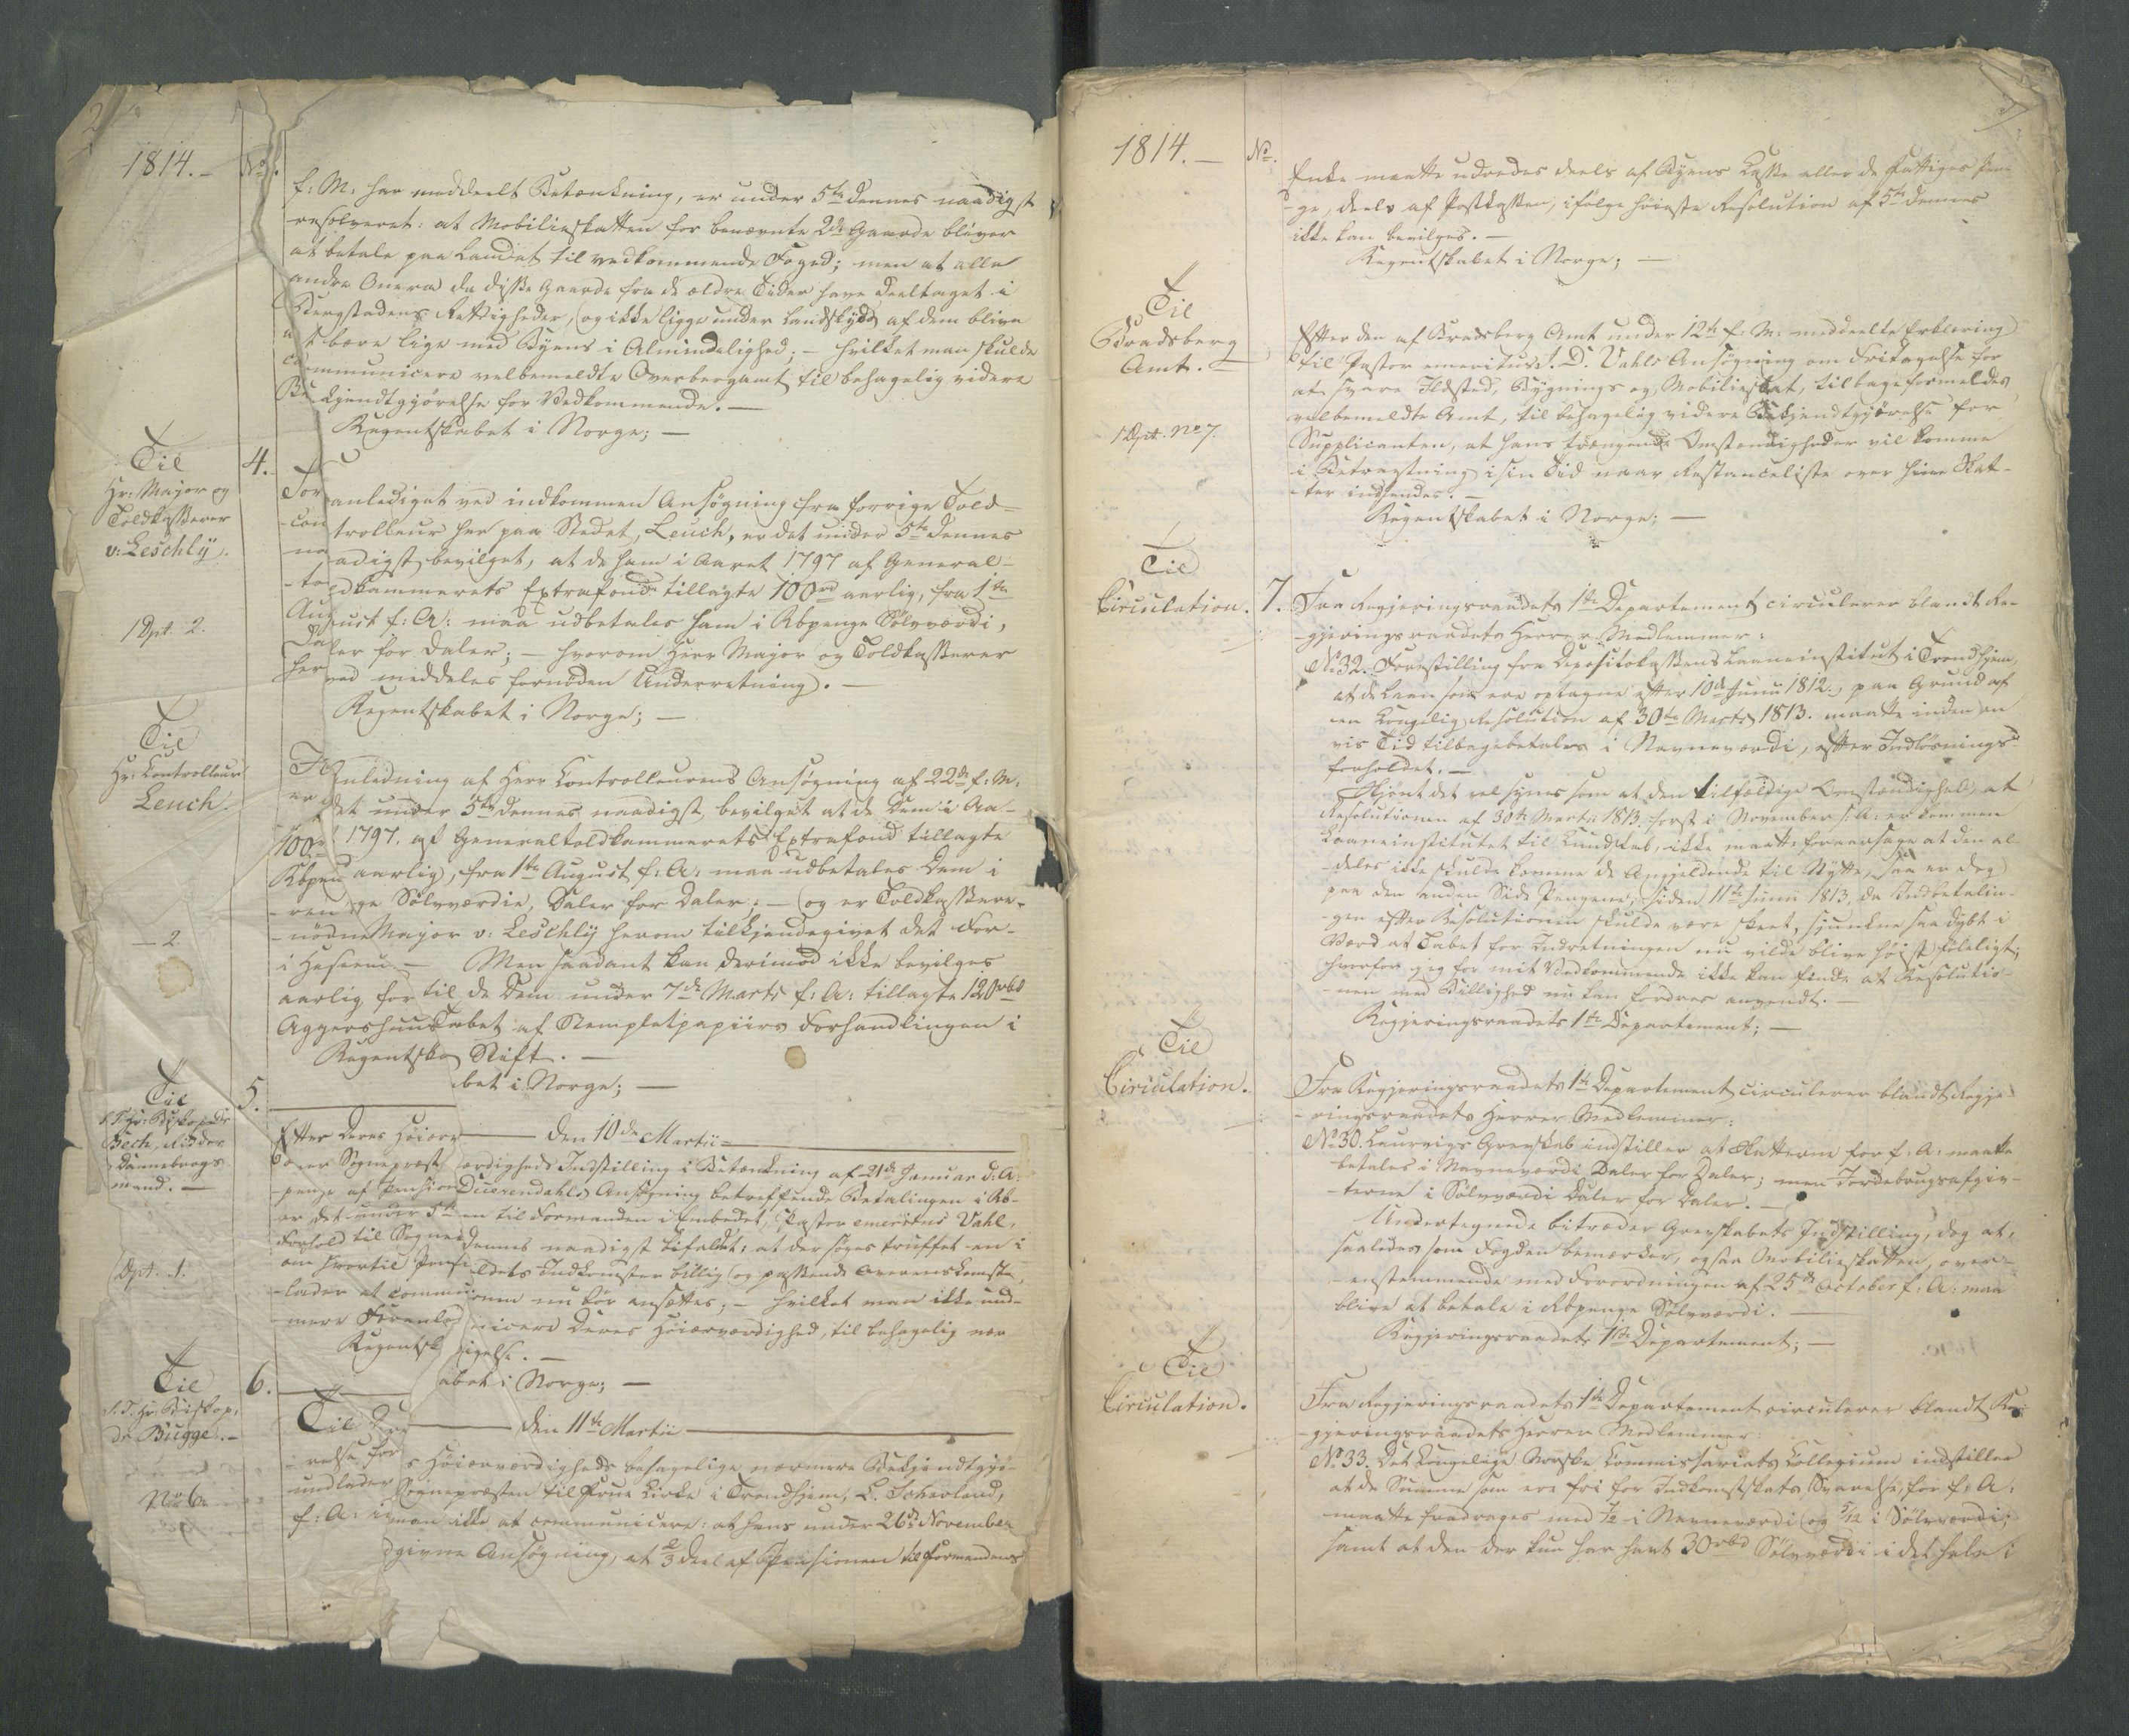 2
1814.–
No.
f: M: har meddeelt Betænkning, er under 5te dennes naadigst
resolveret: at Mobilieskatten for benævnte 2de Gaarde bliver
at betale paa Landet til vedkommende Foged; men at alle
andre Onera da disse Gaarde fra de ældre Tider have deeltaget i
Bergstadens Rettigheder, (og ikke ligge under Landskyld) af dem blive
at bære lige med Byens i Almindelighed; – hvilket man skulde
communicere velbemeldte Overbergamt til behagelig videre
Bekjendtgjørelse for Vedkommende. –
Regentskabet i Norge; –
Til
Hr: Major og
Toldkasserer
v: Leschlÿ.
1 Dpt. 2.
4.
Foranlediget ved indkommen Ansøgning fra forrige Told-
controlleur her paa Stedet, Leuch, er det under 5te dennes
naadigst bevilget, at de ham i Aaret 1797 af General-
-toldkammerets Extrafond tillagte 100rd aarlig, fra 1te
August f: A: maa udbetales ham i Rbpenge Sølvværdi,
Daler for Daler; – hvorom Herr Major og Toldkasserer
herved meddeles fornøden Underretning. –
Regentskabet i Norge; –
Til
Hr: Controlleur
Leuch.
– 2.
I Anledning af Herr Controlleurens Ansøgning af 22de f: M:
er det under 5te dennes naadigst bevilget at de Dem i Aa-
1797. af Generaltoldkammerets Extrafond tillagte
100rd aarlig, fra 1te August f: A: maa udbetales Dem i
Rbpenge Sølvværdie, Daler for Daler; – og er Toldkassere-
-ren Major v: Leschlÿ herom tilkjendegivet det For-
-nødne – Men saadant kan derimod ikke bevilges
i Henseende til de Dem under 7de Marts f: A: tillagte 120rbd
aarlig for Tabet af Stempletpapiirs Forhandlingen i
Aggershuus Stift. –
Regentskabet i Norge; –
den 10de Martii
Til
S. T. Hr: Biskop Dr
Bech, Ridder
Dannebrogs
mand. –
Dpt. 1.
5.
Efter Deres Høiærværdigheds Indstilling i Betænkning af 21de Januar d: A:
over Sognepræst Duerendahls Ansøgning betreffende Betalingen i Rb-
-penge af Pensionen til Formanden i Embedet, Pastor emeritus Vahl,
er det under 5te dennes naadigst bifaldt: at der søges truffet en i
Forhold til Sognekaldets Indkomster billig og passende Overenskomst,
om hvortil Pensionen nu bør ansættes; – hvilket man ikke und-
-lader at communicere Deres Høiærværdighed, til behagelig nær-
mere Foranledigelse. –
Regentskabet i Norge; –
den 11te Martii
Til
S. T. Hr: Biskop,
Dr Bugge. –
No 6.
6.
Til Deres Høiærværdigheds behagelige nærmere Bekjendtgjø-
-relse for Sognepræsten til Frue Kirke i Trondhjem, L. Scherland,
undlader man ikke at communicere: at hans under 26de November
f: A: indgivne Ansøgning, at 2/3 Deel af Pensionen til Formandens
1814. –
No.
Enke maatte udredes deels af Byens Kasse eller de Fattiges Pen-
-ge, deels af Postkassen, ifølge høieste Resolution af 5te dennes
ikke kan bevilges. –
Regentskabet i Norge; –
Til
Bradsberg
Amt. –
1 Dpt. No 7.
Efter den af Bradsberg Amt under 12te f: M: meddeelte Erklæring
til Pastor emeritus J. D. Vahls Ansøgning om Fritagelse for
at svare Ildsted, Bygnings og Mobilieskat, tilbageformeldes
velbemeldte Amt, til behagelig videre Bekjendtgjørelse for
Supplicanten, at hans trængende Omstændigheder vil komme
i Betragtning i sin Tid naar Restanceliste over hine Skat-
-ter indsendes. –
Regentskabet i Norge; –
Til
Circulation.
7.
Fra Regjeringsraadets 1te Departement circulerer blandt Re-
-gjeringsraadets Herrer Medlemmer:
No 32. Forestilling fra Depositokassens Laaneinstitut i Trondhjem,
at de Laan som ere optagne efter 10de Junii 1812., paa Grund af
en Kongelig Resolution af 30te Marts 1813. maatte inden en
vis Tid tilbagebetales i Navneværdi, efter Indløsnings-
forholdet. –
Skjønt det vel synes som at den tilfældige Omstændighed, at
Resolutionen af 30te Martii 1813. først i November s: A: er kommen
Laaneinstitutet til Kundskab, ikke maatte foraarsage at den al-
-deles ikke skulde komme de Angjeldende til Nytte, saa er dog
paa den anden Side Pengene, siden 11te Junii 1813, da Indbetalin-
-gen efter Resolutionen skulde være skeet, sjunkne saa dybt i
Værd at Tabet for Indretningen nu vilde blive høist føleligt;
hvorfor jeg for mit Vedkommende ikke kan finde at Resolutio-
-nen med Billighed nu kan fordres anvendt. –
Regjeringsraadets 1te Departement; –
Til
Circulation.
Fra Regjeringsraadets 1te Departement circulerer blandt Regje-
-ringsraadets Herrer Medlemmer:
No 30. Laurvigs Grevskab indstiller at Skatterne for f: A: maatte
betales i Navneværdi Daler for Daler; men Jordebrugsafgiv-
-terne i Sølvværdi Daler for Daler. –
Undertegnede bitræder Grevskabets Indstilling, dog at,
saaledes som Fogden bemærker, ogsaa Mobilieskatten, over-
-ensstemmende med Forordningen af 25de October f: A: maa
blive at betale i Rbpenge Sølvværdi. –
Regjeringsraadets 1te Departement; –
Til
Circulation.
Fra Regjeringsraadets 1te Departement circulerer blandt Re-
-gjeringsraadets Herrer Medlemmer:
No 33. Det Kongelige Norske Commissariats Collegium indstiller
at de Summer som ere fri for Indkomstskats Svarelse, for f: A:
maatte fradrages med 7/12 i Navneværdi og 5/12 i Sølvværdi;
samt at den der kun har havt 30rbd Sølvværdi i det hele i